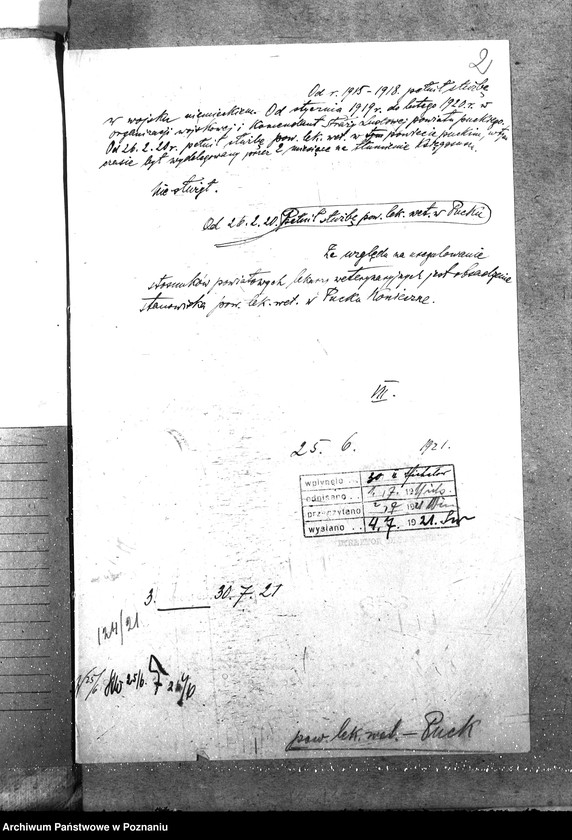 2
Od r. 1915-1918. pełnił służbę
w wojsku niemieckim. Od stycznia 1919 r. do lutego 1920. r. w
organizacji wojskowej i Komendant Straży Ludowej powiatu puckiego.
Od 26. 2. 20 r. pełnił służbę pow. lek. wet. w tym powiecie puckim, w tym
czasie był wydelegowany przez 2 miesiące na tłumienie księgosuszu.
Nie służył.
Od 26. 2. 20. Pełnił służbę pow. lek. wet. w Pucku
Ze względu na uregulowanie
stosunków powiatowych lekarzy weterynaryjnych jest obsadzenie
stanowiska pow. lek. wet. w Pucku konieczne.
III.
25. 6. 1921.
wpłynęło . . 30 6
odpisano . . 2. 7. 192
przeczytano 2, 7 1921
wysłano . . 4. 7. 1921.
DYREKTOR
3. 30. 7. 21
124/21
25/6 25/6. 7
pow. lek. wet. - Puck
Archiwum Państwowe w Poznaniu